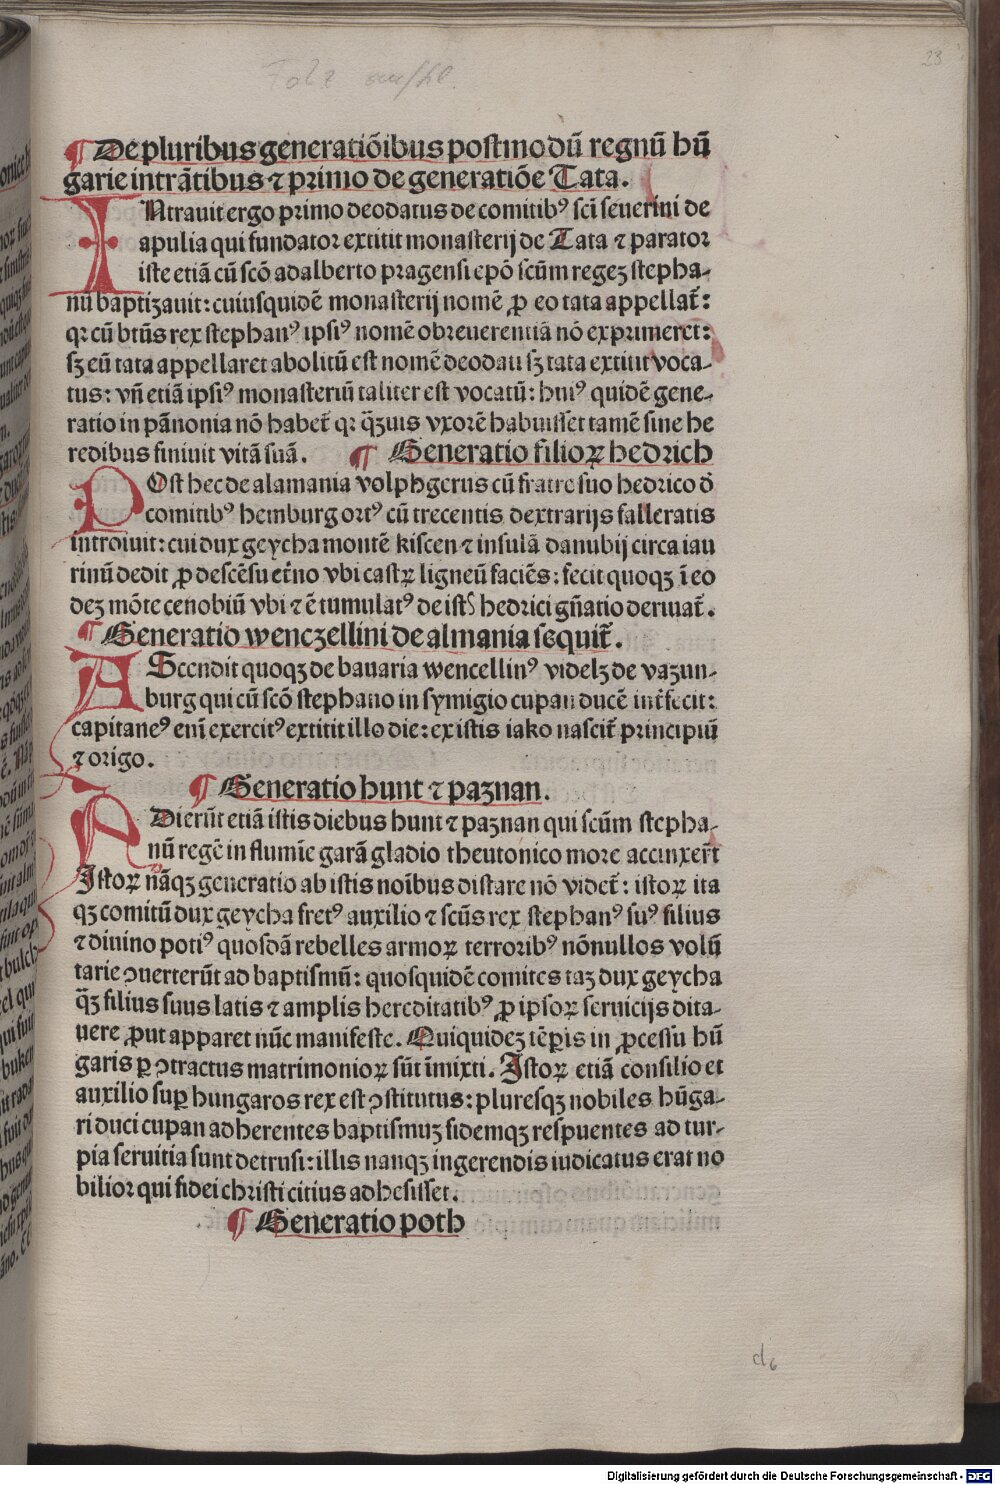 23
¶ De pluribus generatiōibus postmodū regnū hū
garie intrātibus ⁊ primo de generatiōe Tata.
INtrauit ergo primo deodatus de comitibꝰ sci̅ seuerini de
apulia qui fundator extitit monasterij de Tata ⁊ parator
iste etiā cū scō adalberto pragensi epō scūm regeꝫ stepha⸗
nū baptizauit: cuiusquidē monasterij nomē ꝓ eo tata appellat̄:
qꝛ cū btūs rex stephanꝰ ipsiꝰ nomē ob reuerentiā nō exprimeret:
sꝫ eū tata appellaret abolitū est nomē deodati sꝫ tata extitit voca⸗
tus: vn̄ etiā ipsiꝰ monasteriū taliter est vocatū: huiꝰ quidē gene⸗
ratio in pānonia nō habet̄ qꝛ q̄ꝫuis vxorē habuisset tamē sine he
redibus finiuit vitā suā. ¶ Generatio filioꝝ hedrich
POst hec de alamania volphgerus cū fratre suo hedrico d̄
comitibꝰ hemburg ortꝰ cū trecentis dextrarijs falleratis
introiuit: cui dux geycha montē kiscen ⁊ insulā danubij circa iau
rinū dedit ꝓ descēsu et̄no vbi castꝝ ligneū faciēs: fecit quoqꝫ ī eo
deꝫ mōte cenobiū vbi ⁊ ē tumulatꝰ de istꝰ hedrici gn̄atio deriuat̄.
¶ Generatio wenczellini de almania sequit̄.
AScendit quoqꝫ de bauaria wencellinꝰ videlꝫ de vaꝫun⸗
burg qui cū scō stephano in symigio cupan ducē int̄fecit:
capitaneꝰ eni̅ exercitꝰ extitit illo die: ex istis iako nascit̄ principiū
⁊ origo.
¶ Generatio hunt ⁊ paꝫnan.
ADierūt etiā istis diebus hunt ⁊ paꝫnan qui scūm stepha⸗
nū regē in flumīe garā gladio theutonico more accinxer̄t
Istoꝝ nāqꝫ generatio ab istis noībus distare nō videt̄: istoꝝ ita
qꝫ comitū dux geycha fretꝰ auxilio ⁊ scūs rex stephanꝰ suꝰ filius
⁊ diuino potiꝰ quosdā rebelles armoꝝ terroribꝰ nōnullos volū
tarie ꝯuerterūt ad baptismū: quosquidē comites taꝫ dux geycha
q̄ꝫ filius suus latis ⁊ amplis hereditatibꝰ ꝓ ipsoꝝ seruicijs dita⸗
uere ꝓut apparet nūc manifeste. Quiquideꝫ tēꝑis in ꝓcessu hū
garis ꝑ ꝯtractus matrimonioꝝ sūt īmixti. Istoꝝ etiā consilio et
auxilio suꝑ hungaros rex est ꝯstitutus: pluresqꝫ nobiles hūga⸗
ri duci cupan adherentes baptismuꝫ fidemqꝫ respuentes ad tur⸗
pia seruitia sunt detrusi: illis nanqꝫ ingerendis iudicatus erat no
bilior qui fidei christi citius adhesisset.
¶ Generatio poth
d6
Digitalisierung gefördert durch die Deutsche Forschungsgemeinschaft - DFG